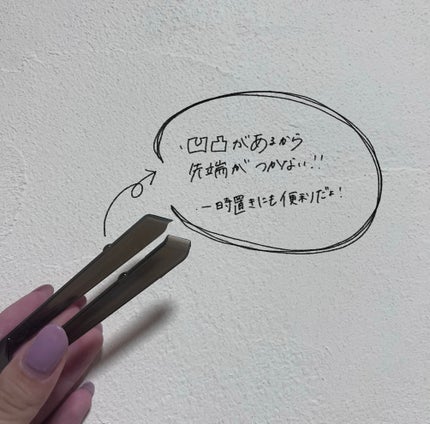 ・凹凸があるから
先端がつかない!!
・一時置きにも便利だよ!